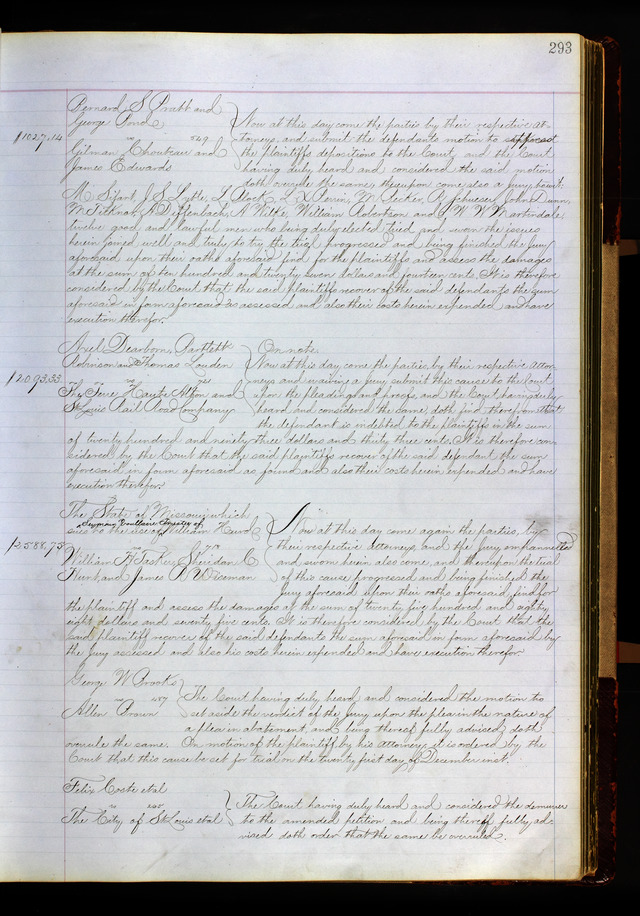 293
Bernard S Pratt and
George Pond
$1027.14 vs 849
Gilman Chouteau and
James Edwards
Now at this day come the parties by their respective at-
torneys, and submit the defendants motion to suppress
the plaintiffs depositions to the Court, and the Court
having duly heard and considered the said motion
doth overrule the same, thereupon come also a jury, towit:
M. Sifant, J. S. Lytle, L Block, L L Perin, M. Lecker, R. Schueser, John Dunn,
M Tittman, A Diffenbach, A Nilte, William Robertson and W W Martindale,
twelve good and lawful men who being duly elected tried, and sworn the issues
herein joined well and truly to try the trial progressed and being finished the jury
aforesaid upon their oaths aforesaid find for the plaintiffs and assess the damages
at the sum of ten hundred and twenty seven dollars and fourteen cents. It is therefore
considered by the Court that the said plaintiffs recover of the said defendants the sum
aforesaid in form aforesaid so assessed and also their costs herein expended and have
execution therefor.
Axel Dearborn, Bartlett
Robinson and Thomas Louden
$2093.33 vs
The Terre Haute Alton and
St Louis Rail Road Company
On note.
Now at this day come the parties, by their respective attor-
neys and waiving a jury submit this cause to the Court
upon the pleadings and proofs, and the Court having duly
heard and considered the same, doth find therefrom that
the defendant is indebted to the plaintiffs in the sum
of twenty hundred and ninety three dollars and thirty three cents. It is therefore con-
sidered by the Court that the said plaintiffs recover of the said defendant the sum
aforesaid, in form aforesaid as found and also their costs herein expended and have
execution therefor.
The State of Missouri which
Seymour Voullaire Trustee of
sues to the use of William Heurd
$2588.75 vs
William A Tasker, Sheridan C
Hunt, and James A Wiseman
Now at this day come again the parties, by
their respective Attorneys, and the Jury empannelled
and sworn herein also come, and thereupon the trial
of this cause progressed and being finished the
jury aforesaid upon their oaths aforesaid, find for
the plaintiff and assess the damages at the sum of twenty five hundred and eighty
eight dollars and seventy five cents. It is therefore considered by the Court that the
said plaintiff recover of the said defendants the sum aforesaid in form aforesaid by
the jury assessed and also his costs herein expended and have execution therefor.
George W Broots
vs 487
Allen Brown
The Court having duly heard and considered the motion to
set aside the verdict of the Jury upon the plea in the nature of
a plea in abatement, and being thereof fully advised, doth
overrule the same. On motion of the plaintiff by his attorney, it is ordered by the
Court that this cause be set for trial on the twenty first day of December inst.
Felix Coste et al
vs
The City of St Louis et al
The Court having duly heard and considered the demurrer
to the amended petition and being thereof fully ad-
vised doth order that the same be overruled.